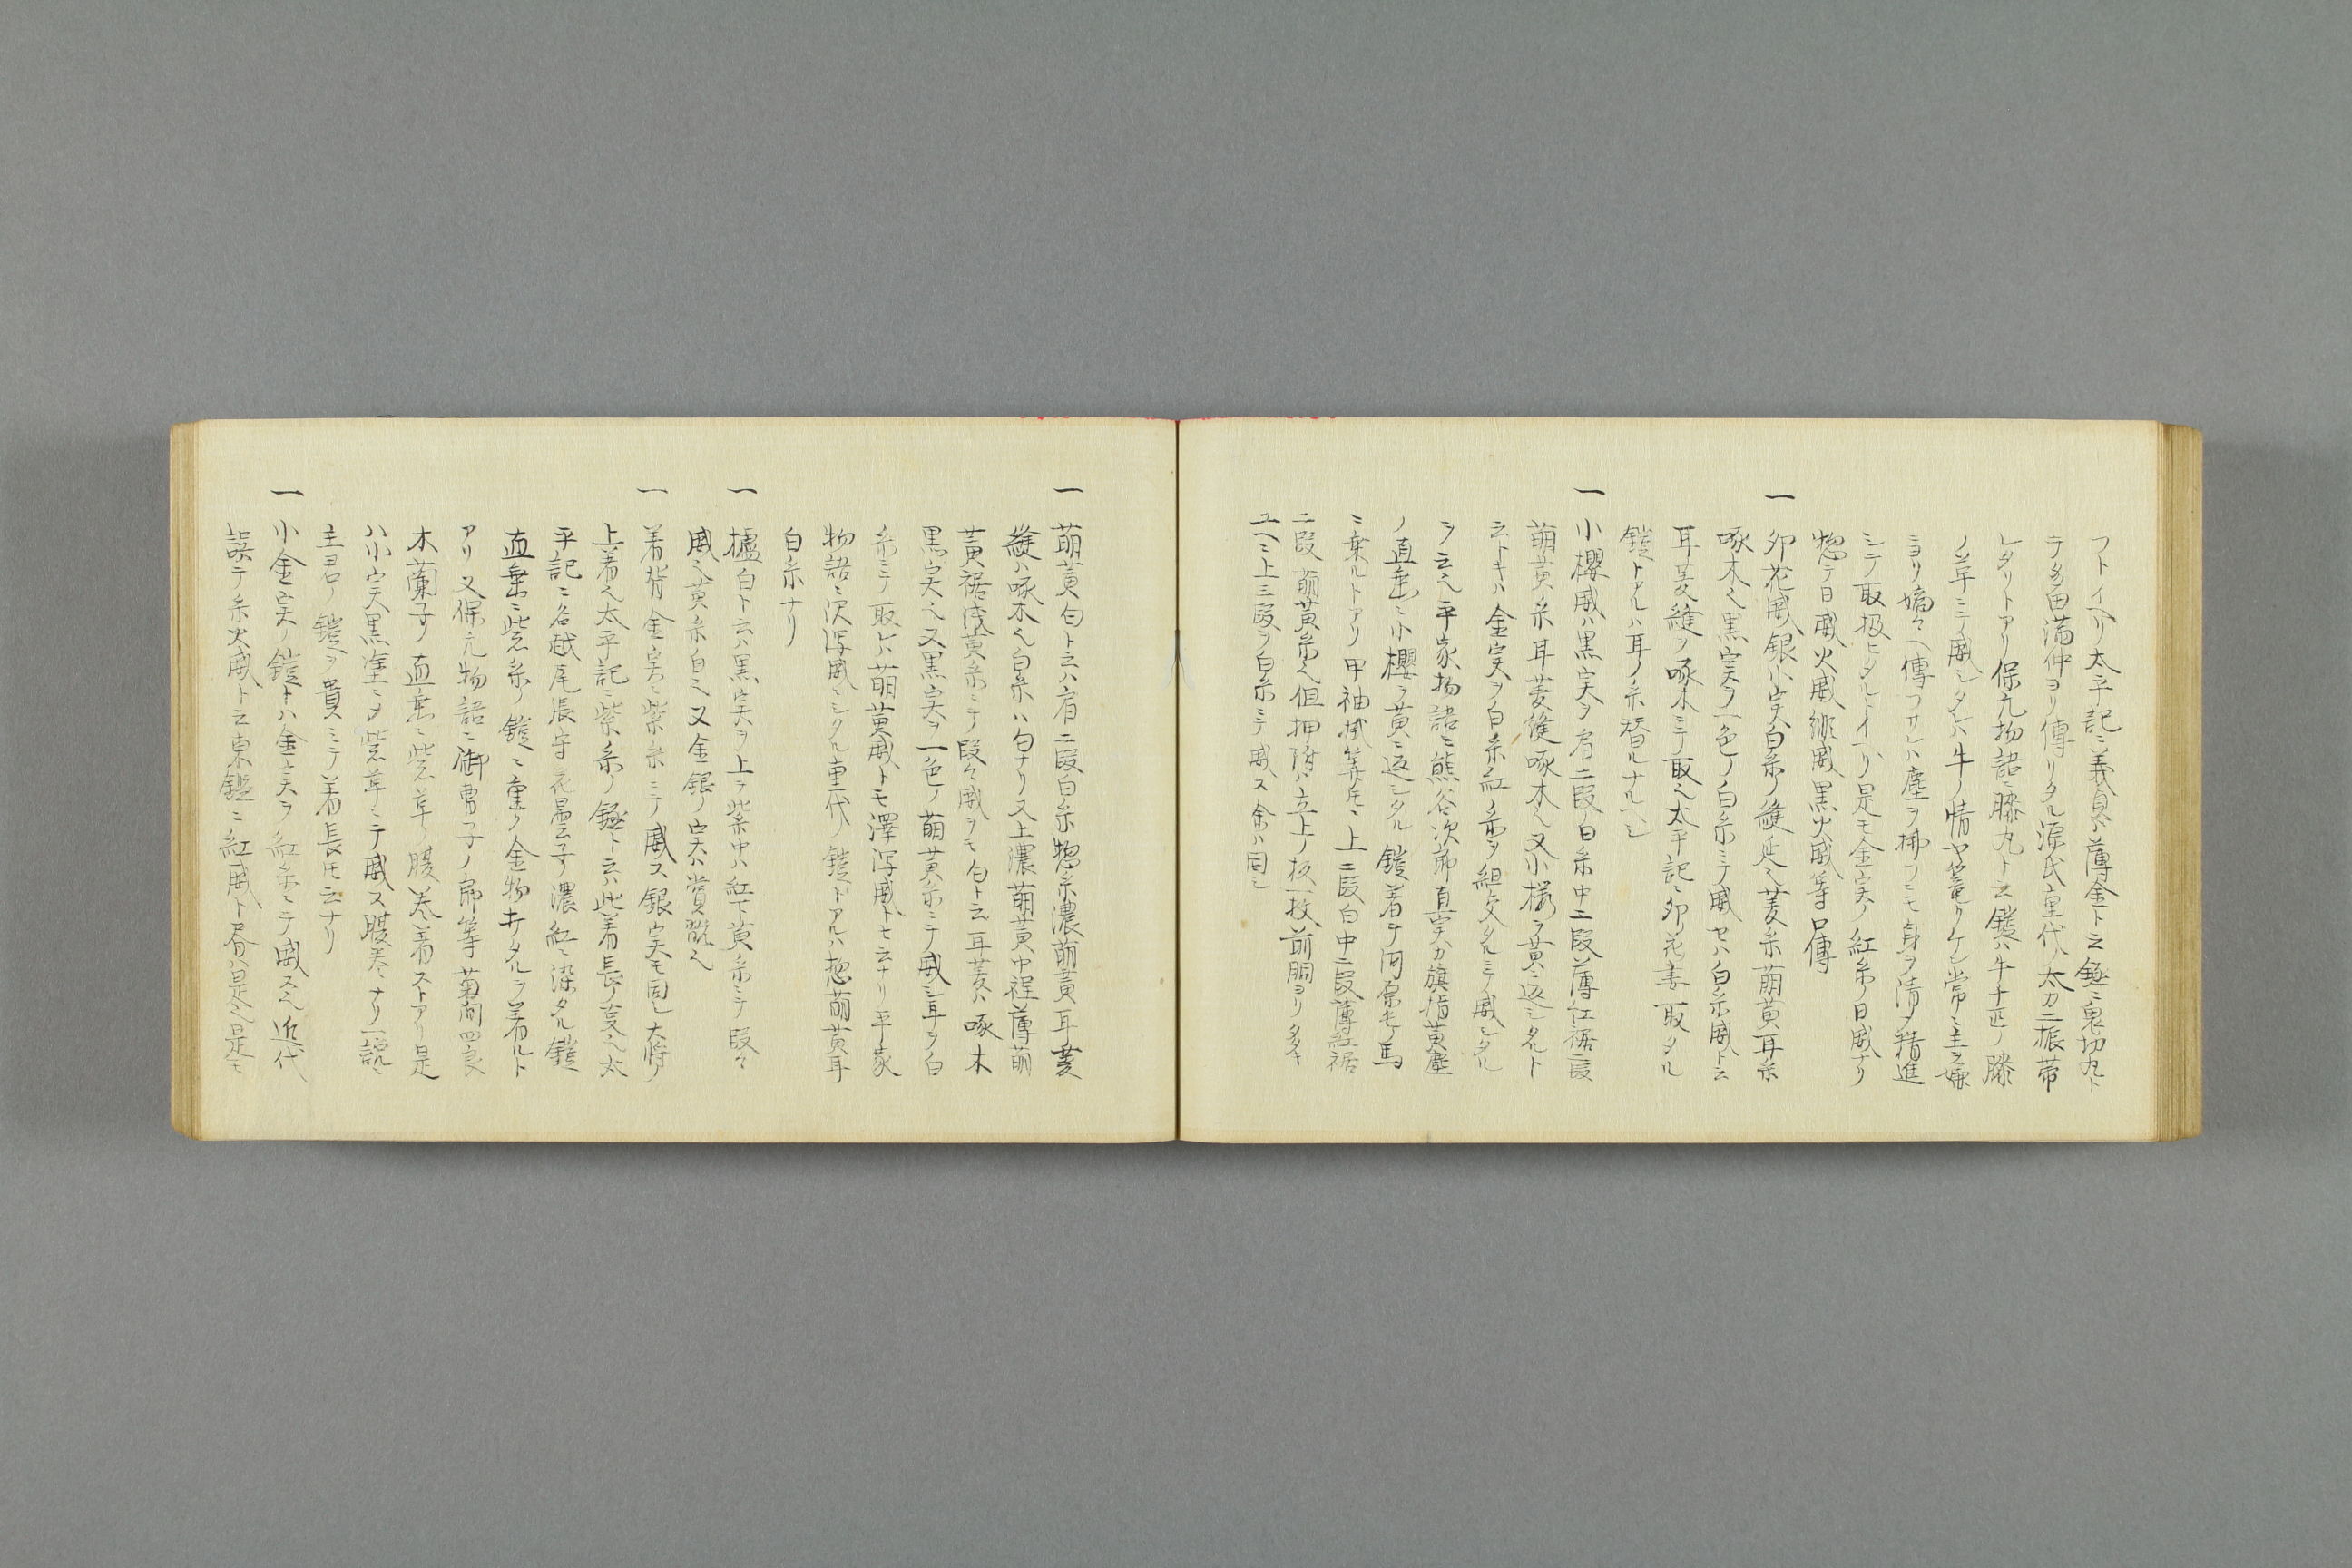 フトイヘリ太平記ニ義貞ハ薄金ト云鎧ニ鬼切丸ト
テ多田満仲ヨリ傳リタル源氏重代ノ太刀二振帯
レタリトアリ保元物語ニ膝丸ト云鎧ハ牛千疋ノ膝
ノ革ニテ威シタレハ牛ノ情ヤ篭リケン常ニ主ヲ嫌
ヨリ嫡々ヘ傳フサレハ塵ヲ拂フニモ身ヲ清メ精進
シテ取扱ヒタルトイヘリ是モ金実ノ紅糸ノ日威ナリ
惣テ日威火威緋威黒火威等口傳
一 卯花威銀小実白糸ノ縫延也菱糸萌黄耳糸
啄木也黒実ヲ一色ノ白糸ニテ威セハ白糸威ト云
耳菱縫ヲ啄木ニテ取也太平記ニ卯ノ花妻取タル
鎧トアルハ耳ノ糸替ルナルヘシ
一 小櫻威ハ黒実ヲ肩二段白糸中二段薄紅裾二段
萌黄糸耳菱縫啄木也又小桜ヲ黄ニ返シタルト
云トキハ金実ヲ白糸紅ノ糸ヲ組交タルミテ威シタル
ヲ云也平家物語ニ熊谷次郎直実カ旗指黄塵
ノ直垂ニ小櫻ヲ黄ニ返シタル鎧着テ河原毛ノ馬
ニ乗ルトアリ甲袖威等モニ上二段白中二段薄紅裾
二段萌黄糸也但押附ハ立上ノ板一枚前胴ヨリ多キ
ユヘニ上三段ヲ白糸ニテ威ス余ハ同シ
一 萌黄匂ト云ハ肩二段白糸惣糸濃萌黄耳菱
縫ハ啄木也白糸ハ匂ナリ又上濃萌黄中程薄萌
黄裾浅黄糸ニテ段々威ヲモ匂ト云耳菱ハ啄木
黒実也又黒実ヲ一色ノ萌黄糸ニテ威シ耳ヲ白
糸ニテ取レハ萌黄威トモ澤瀉威トモ云ナリ平家
物語ニ沢瀉威ニシタル重代ノ鎧トアルハ惣萌黄耳
白糸ナリ
一 櫨匂ト云ハ黒実ヲ上ヲ紫中ハ紅下黄糸ニテ段々
威也黄糸匂也又金銀ノ実ハ賞翫也
一 着背金実ニ紫糸ニテ威ス銀実モ同シ大将ノ
上着也太平記ニ紫糸ノ鎧ト云ハ此着長ノ支也太
平記ニ名越尾張守花曇子ノ濃紅ニ染タル鎧
直垂ニ紫糸ノ鎧ニ重ク金物打タルヲ着ルト
アリ又保元物語ニ御曹子ノ郎等菊間四良
木蘭子ノ直垂ニ紫革ノ腹巻着ストアリ是
ハ小実黒塗ニメ紫革ニテ威ス腹巻ナリ一説ニ
主君ノ鎧ヲ貴ミテ着長トモ云ナリ
一 小金実ノ鎧トハ金実ヲ紅糸ニテ威ス也近代
誤テ糸火威ト云東鑑ニ紅威ト有ハ是也是モ